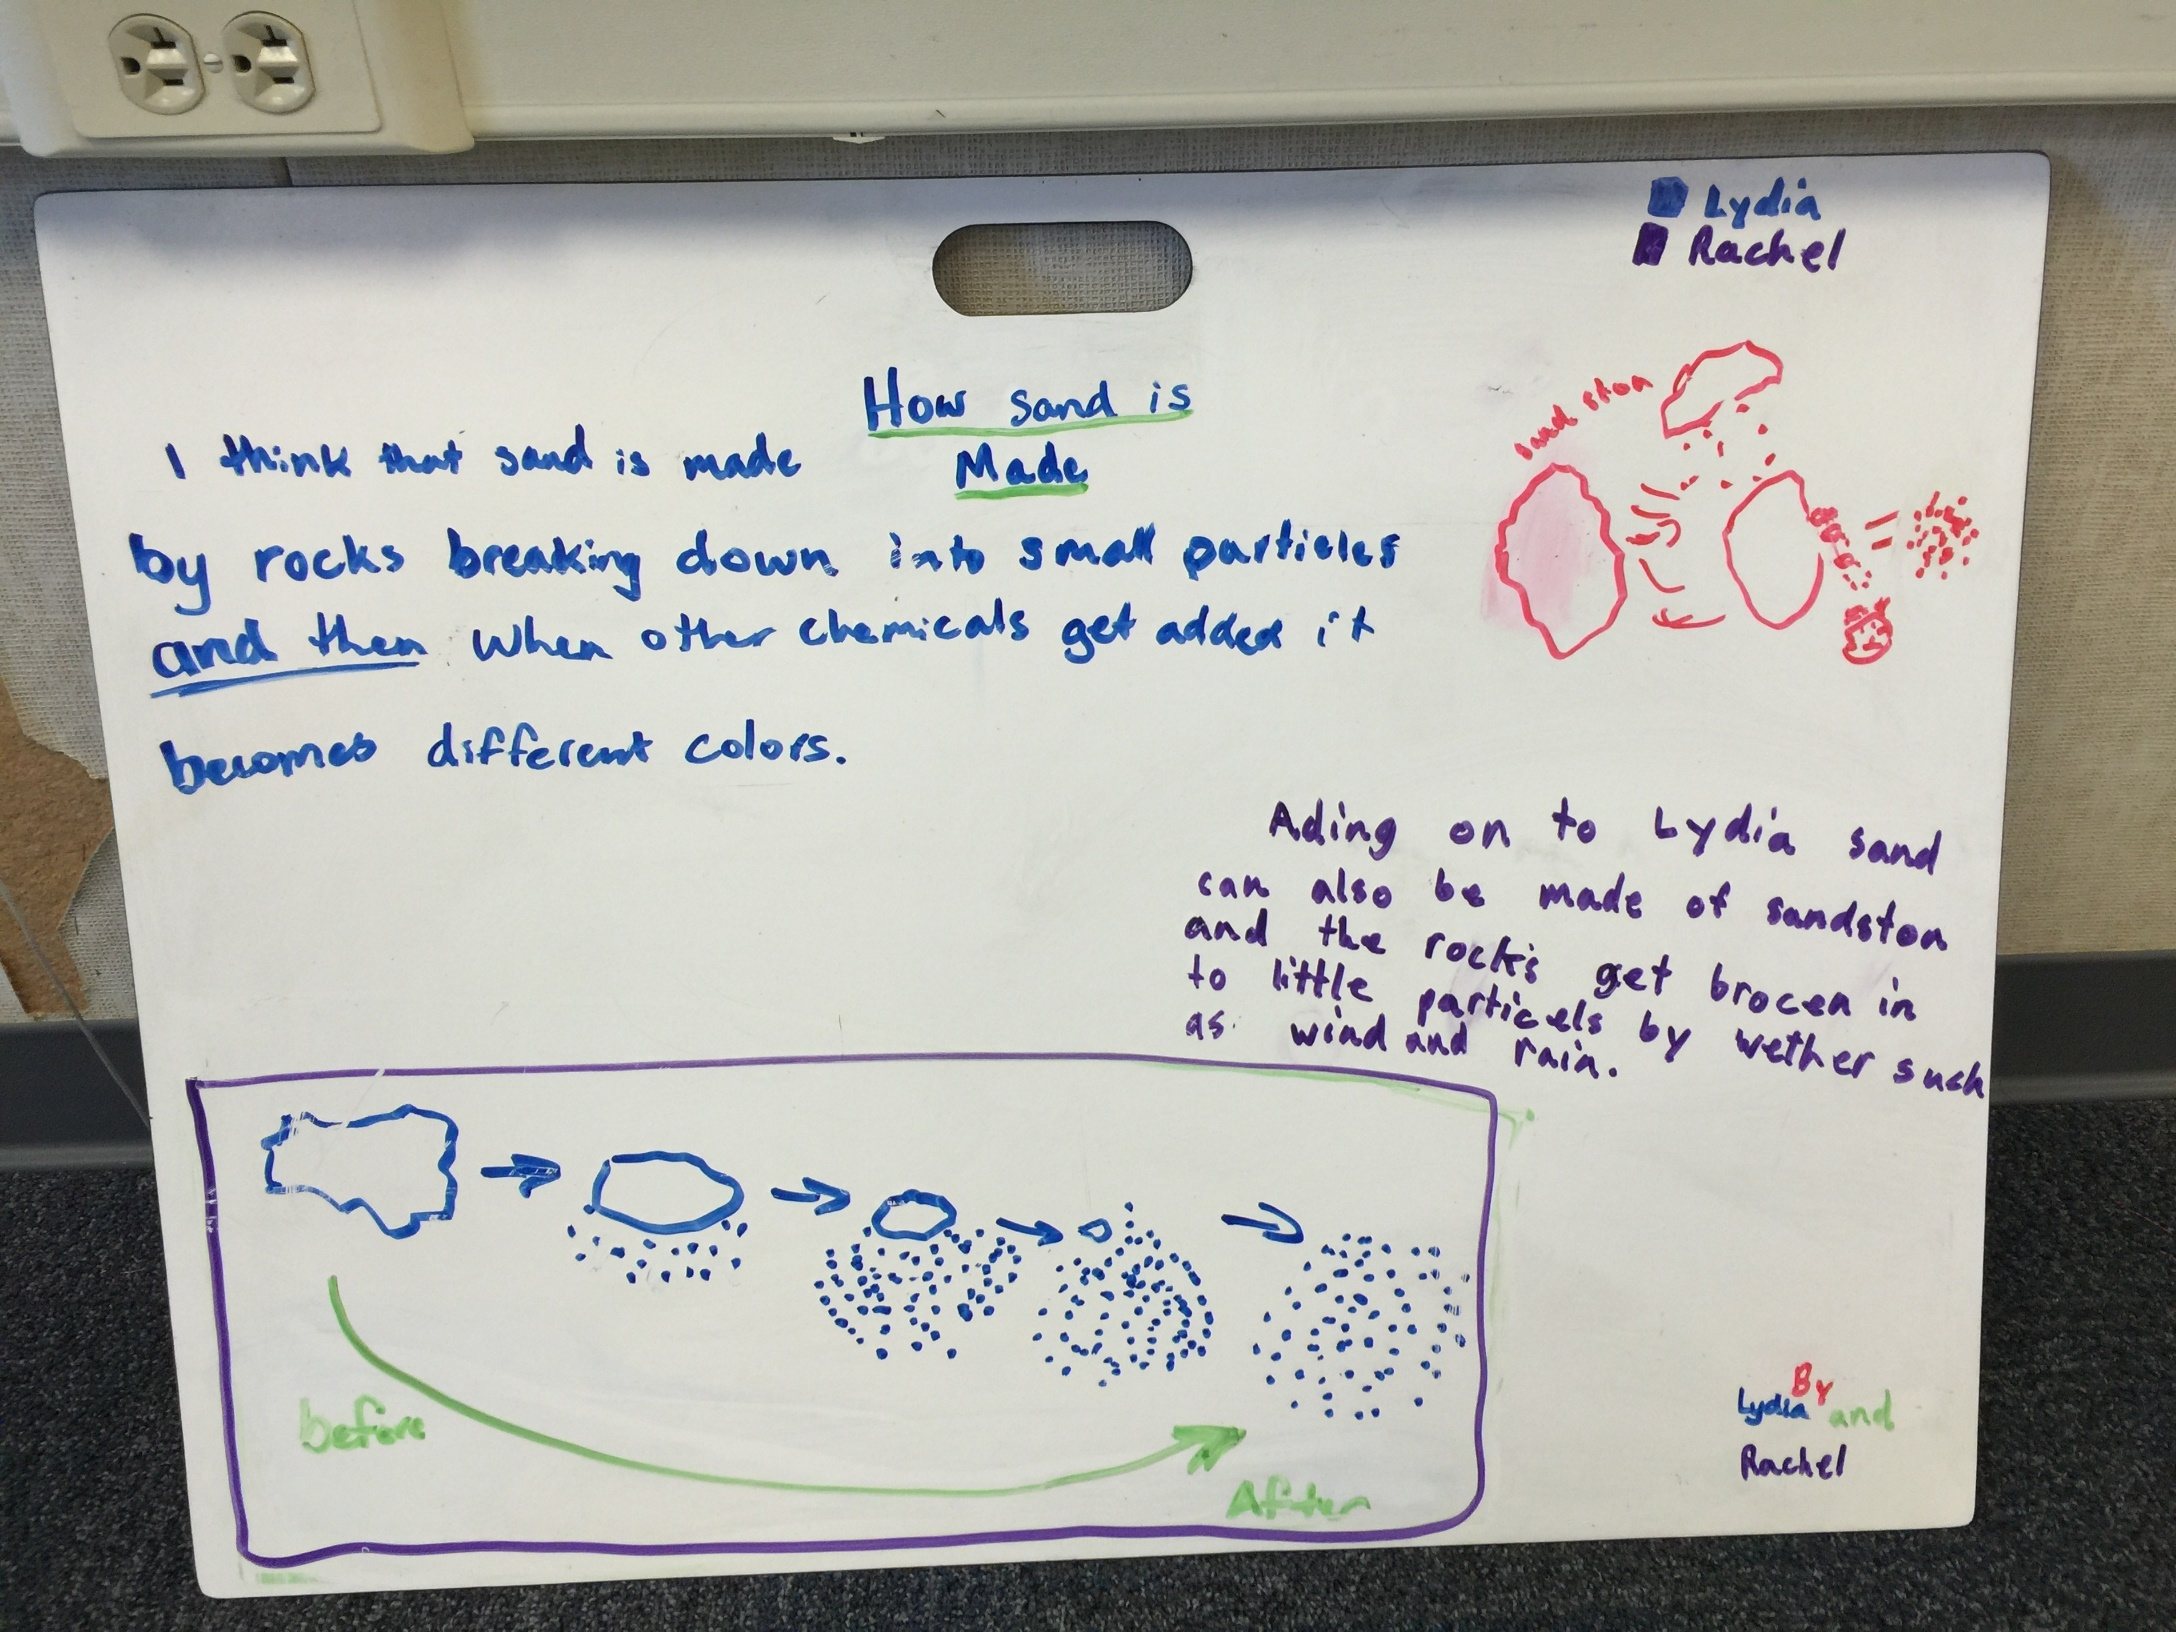 Lydia
Rachel
How sand is
Made
I think that sand is made
by rocks breaking down into small particles
and then when other chemicals get added it
becomes different colors.
Ading on to Lydia sand
can also be made of sandston
and the rocks get brocen in
to little particels by wether such
as wind and rain.
before
After
By
Lydia and
Rachel